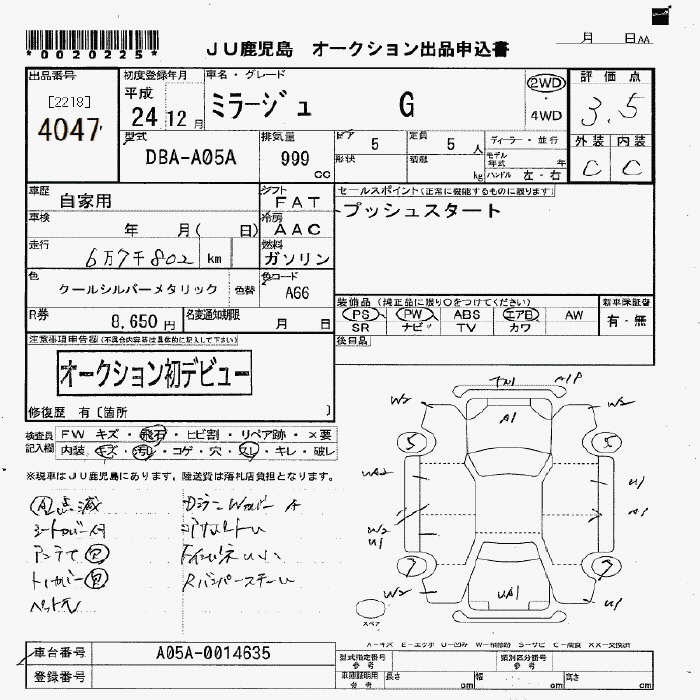 *0020225*
JU鹿児島 オークション出品申込書
月 日 AA
出品番号 初度登録年月 車名・グレード 評価点
[2218] 平成 ミラージュ G 2WD
4047 24 12月 ・4WD 3.5
型式 排気量 ドア 5 定員 5 人 ディーラー・並行 外装 内装
DBA-A05A 999 cc 形状 積載 kg モデル年式 年 C C
ハンドル 左・右
車歴 自家用 シフト FAT セールスポイント(正常に機能するものに限ります)
車検 年 月( 日) 冷房 AAC プッシュスタート
走行 6万7千802 km 燃料 ガソリン
色 クールシルバーメタリック 色替 色コード A66
装備品(純正品に限り○をつけてください) 新車保証書
R券 8,650円 名変通知期限 月 日 PS PW ABS エアB AW 有・無
SR ナビ TV カワ
注意事項申告欄(不具合内容等は具体的に記入して下さい) 後日品
オークション初デビュー
修復歴 有〔箇所 〕
検査員 FW キズ・飛石・ヒビ割・リペア跡・×要
記入欄 内装、キズ・汚れ・コゲ・穴・・キレ・破レ
※現車はJU鹿児島にあります。陸送費は落札店負担となります。
W2 A1P W2
A1
5 5
UA2 U1
W2 A1
U1
7 7
W2 UA1 U1
スペア
A-キズ E-エクボ U-凹み W-補修跡 S-サビ C-腐食 XX-交換済
車台番号 A05A-0014635 型式指定番号 参考 類別区分番号 参考
登録番号 車庫証明用 参考 長さ cm 幅 cm 高さ cm